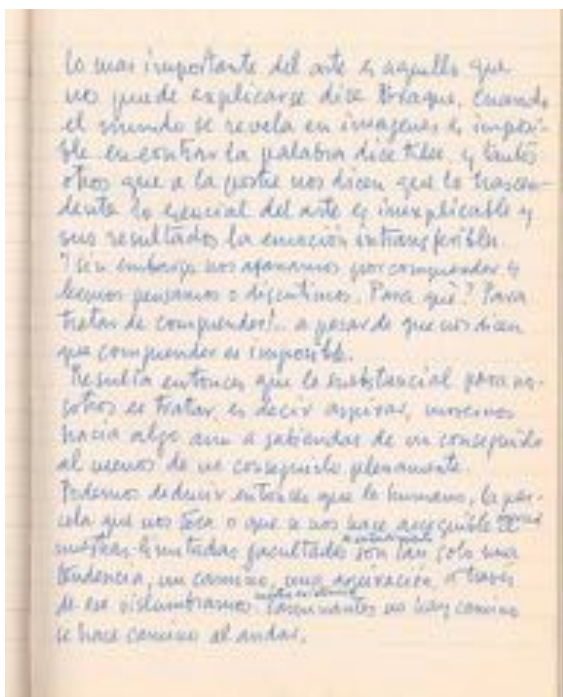 Lo mas importante del arte es aquello que
no puede explicarse dice Braque. Cuando
el mundo se revela en imagenes es imposi-
ble encontrar la palabra dice Klee, y tantos
otros que a la postre nos dicen que lo trascen-
dente lo esencial del arte es inexplicable y
sus resultados la emoción intransferible.
Y sin embargo nos afanamos por comprender y
leemos pensamos o discutimos. Para qué? Para
tratar de comprender!.. a pesar de que nos dicen
que comprender es imposible.
Resulta entonces que lo substancial para no-
sotros es tratar, es decir aspirar, movernos
hacia algo aun a sabiendas de no conseguirlo
al menos de no conseguirlo plenamente.
Podemos deducir entonces que lo humano, la par-
cela que nos toca o que se nos hace asequible
nuestras limitadas facultades son tan solo una
tendencia, un camino, una aspiración, a través
de ese vislumbramos. Caminantes no hay camino
se hace camino al andar.